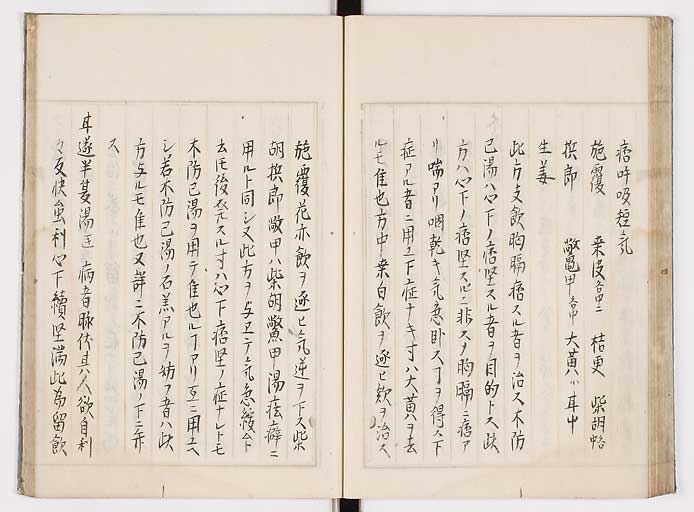 痞呼吸短氣
施覆 桒皮各中二 桔更 柴胡各
梹郎 鱉甲各中 大黄小 耳中
生姜
此方支飲胸膈痞スル者ヲ治ス木防
已湯ハ心下ノ痞堅スル者ヲ目的トス此
方ハ心下ノ痞堅スルニ非スメ胸膈ニ痞ア
リ喘アリ咽乾キ氣急卧ス寸ヲ得ス下
症アル者ニ用ユ下症ナキ寸ハ大黄ヲ去
ルモ隹也方中桒白飲ヲ逐ヒ欬ヲ治ス
施覆花亦飲ヲ逐ヒ氣逆ヲ下ス柴
胡梹郎鱉甲ハ柴胡鱉甲湯痃癖ニ
用ルト同シ又此方ヲ与ヱテ氣急緩ム
去モ後発スル寸ハ心下痞堅ノ症ナレトモ
木防已湯ヲ用テ隹也ルヿアリ互ニ用ユヘ
シ若木防已湯ノ石羔アルヲ妨フ者ハ此
方与ルモ隹也又詳ニ木防已湯ノ下ニ弁
ス
耳遂半夏湯 病者脉伏其人欲自利
々反快虽利心下續堅満此為留飲